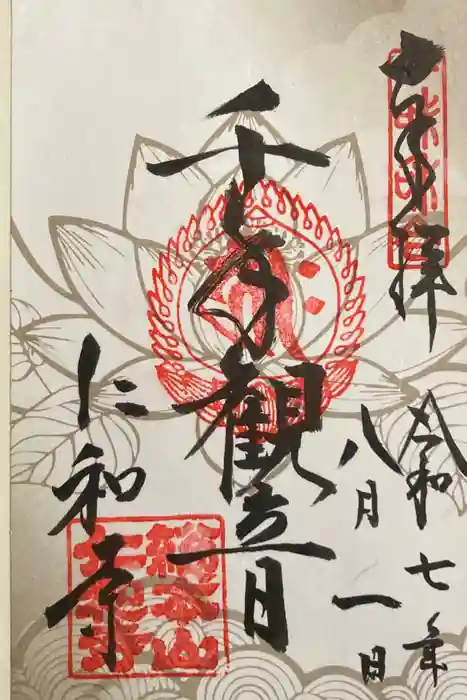 奉拝
令和七年
八月一日
千手観音
仁和寺
総本山
仁和寺